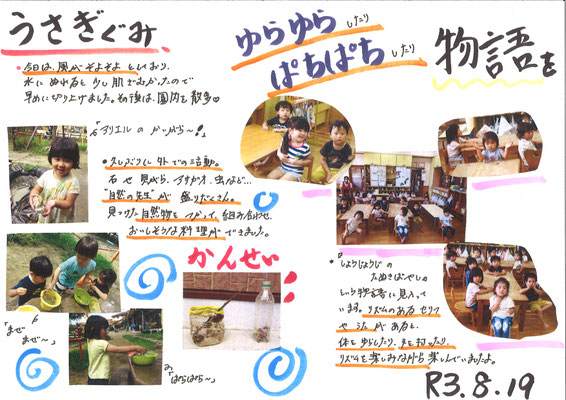 うさぎぐみ
・今日は、風がそよそよとしており、
水にぬれると少し肌ざむかったので
早めに切り上げました。その後は、園内を散歩♡
「アリエルのかいがら〜!」
・久しぶりに外での活動。
石や貝がら、アサガオ、虫など…
"自然の先生"が盛りだくさん。
見つけた自然物をつかって、組み合わせ、
おいしそうな料理ができました。
かんせい!!
「まぜ
まぜ〜」
ぱらぱら〜」
ゆらゆらしたり
ぱちぱちしたり
物語を
・しょうじょうじの
たぬきばやし。
という物語に見入って
います。リズムのあるセリフ
や流れがあると、
体をゆらしたり、手を打ったり、
リズムを楽しみながら楽しんでいましたよ。
R3.8.19